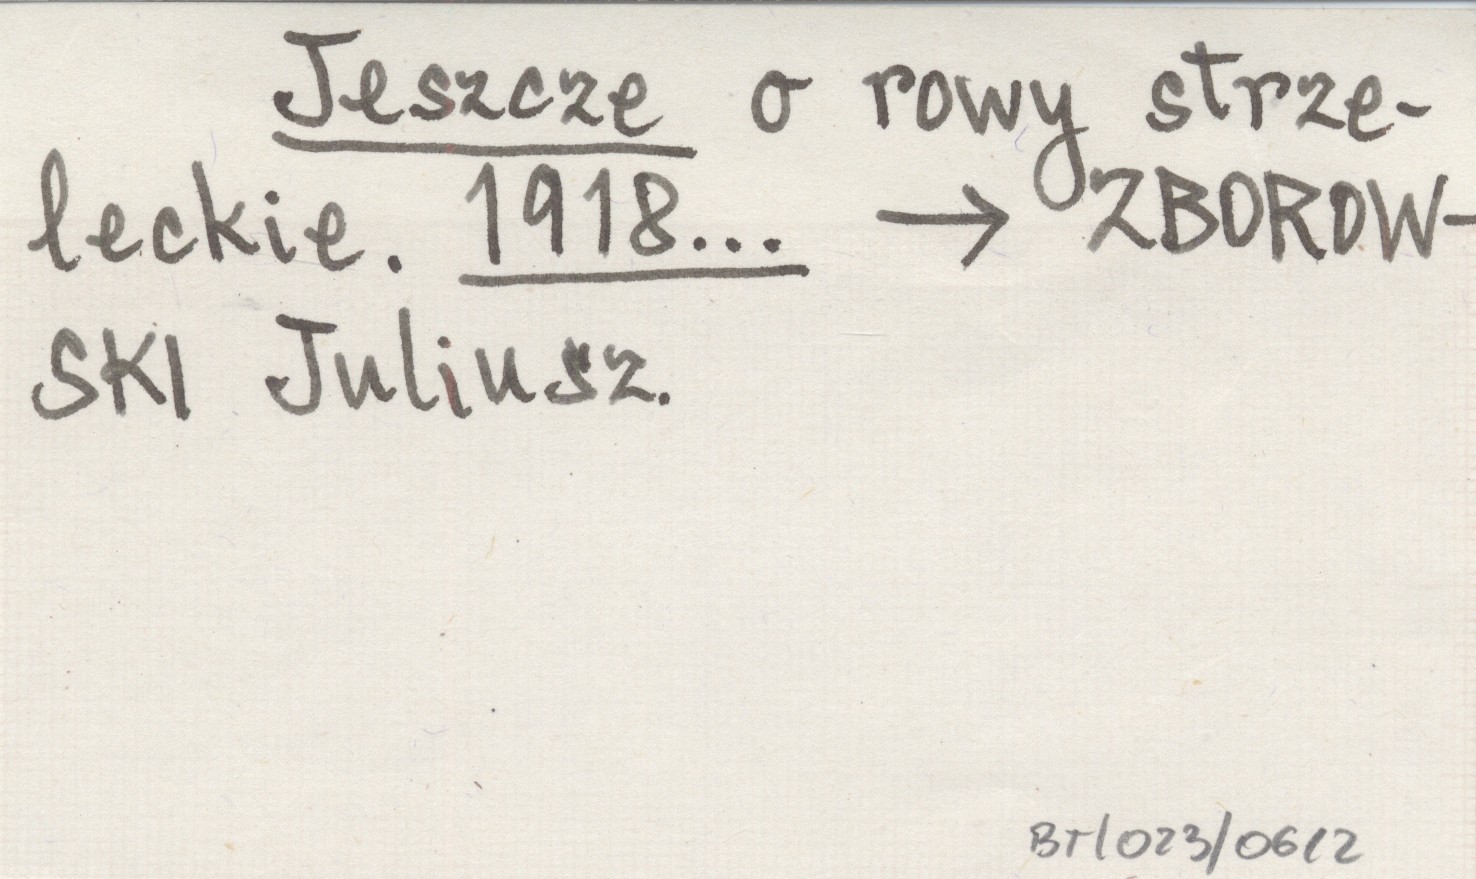 Jeszcze o rowy strze-
leckie. 1918... → ZBOROW-
SKI Juliusz.
BT/023/0612